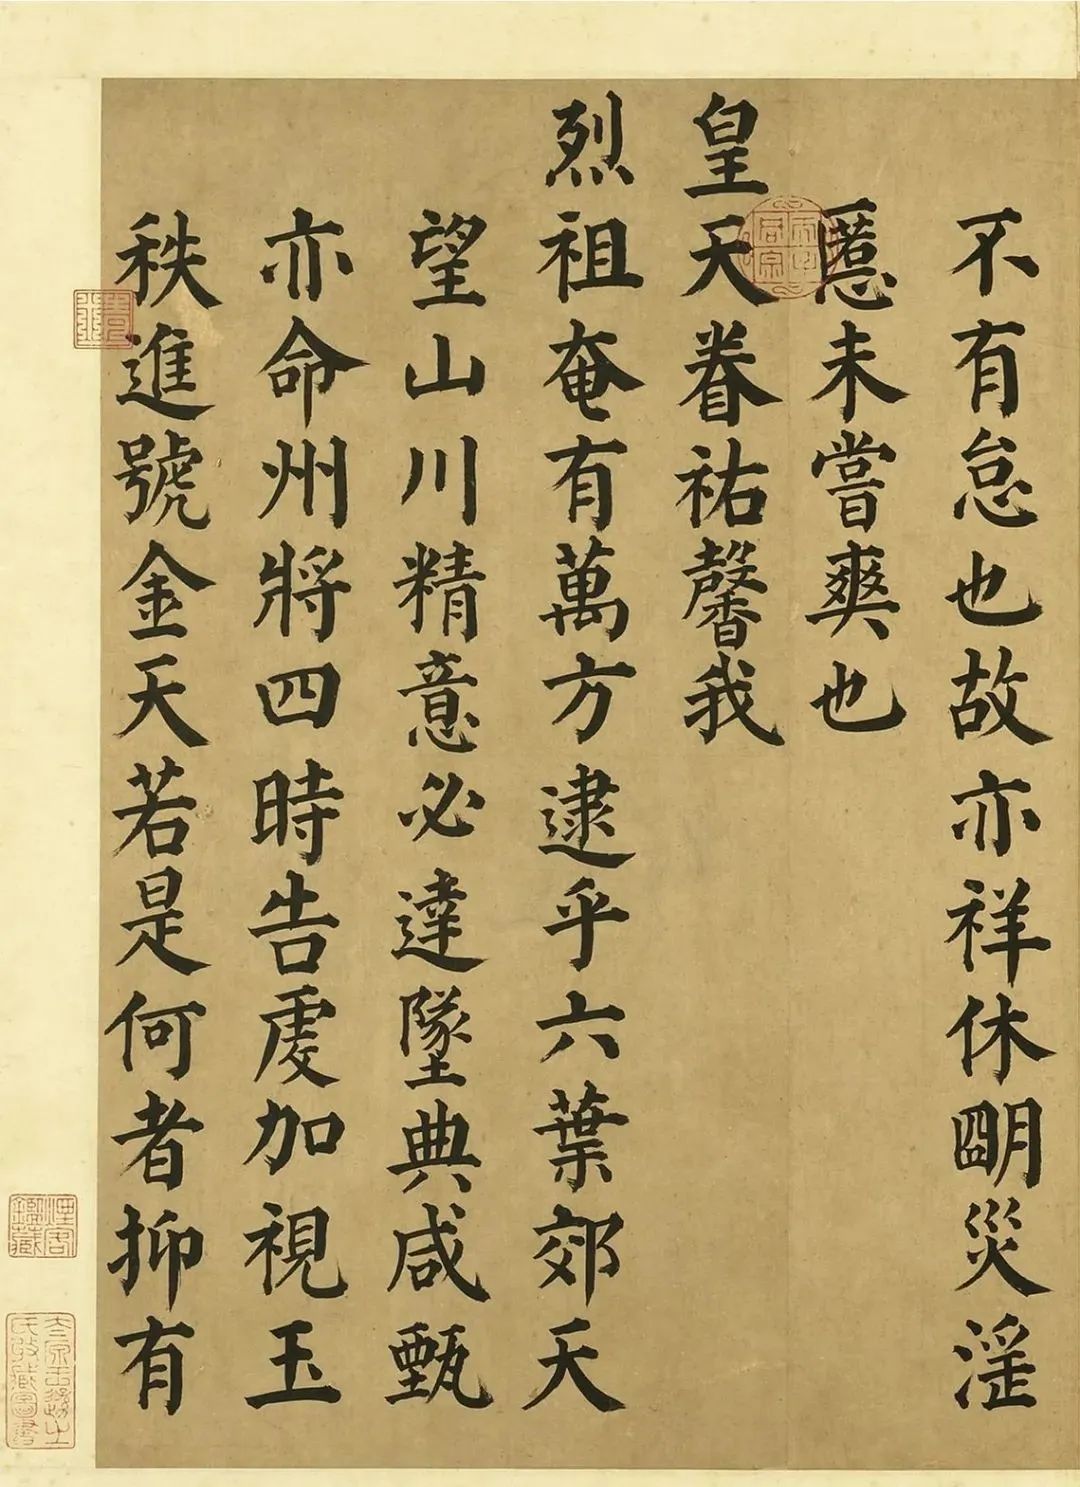 不有怠也故亦祥休明災淫
慝未嘗爽也
皇天眷祐馨我
烈祖奄有萬方逮乎六葉郊天
望山川精意必達墜典咸甄
亦命州將四時告虔加視玉
秩進號金天若是何者抑有
煙客鑑藏